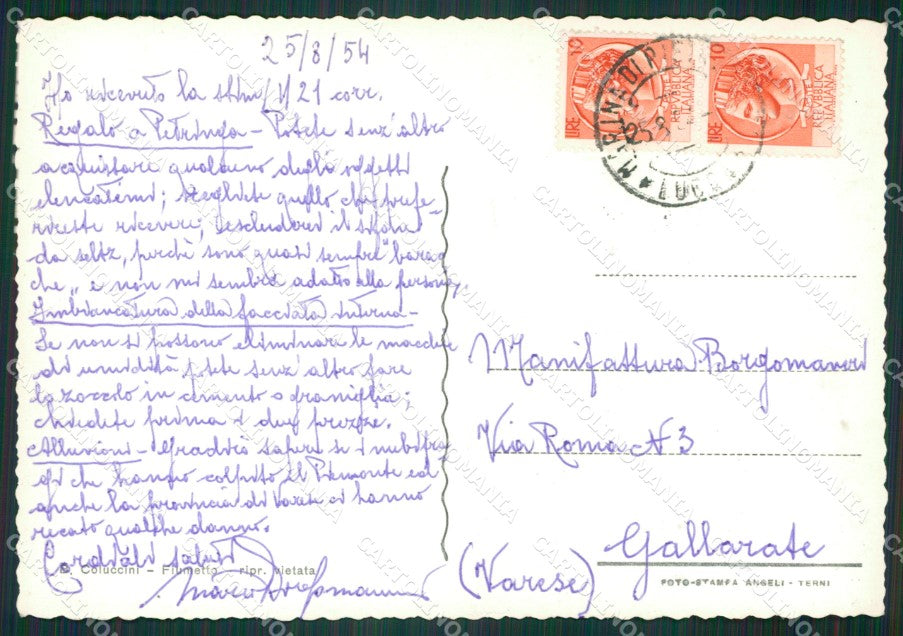 25/8/54
Ho ricevuto la stim/ 21 corr.
Regalo a Petringa - Potete senz'altro
acquistare qualcuno degli oggetti
elencatimi; scegliete quello che prefe-
rireste ricevere, escluderei il sifone
da seltz, perchè sono quasi sempre "barac
che" e non mi sembra adatto alla persona.
Imbiancatura della facciata interna -
Se non si possono eliminare le macchie
di umidità fate senz'altro fare
lo zoccolo in cemento o graniglia;
chiedete prima i due prezzi.
Alluvioni - Gradirò sapere se i nubifra
gi che hanno colpito il Piemonte ed
anche la provincia di Varese ci hanno
recato qualche danno.
Cordiali saluti
Mario Borgomaneri
D. Coluccini - Fiumetto - ripr. vietata
10 LIRE REPVBBLICA ITALIANA
10 LIRE POSTE REPVBBLICA ITALIANA
MARINA DI PI
LUCCA
Manifattura Borgomaneri
Via Roma N 3
Gallarate
(Varese)
FOTO-STAMPA ANGELI - TERNI
CARTOLINOMANIA